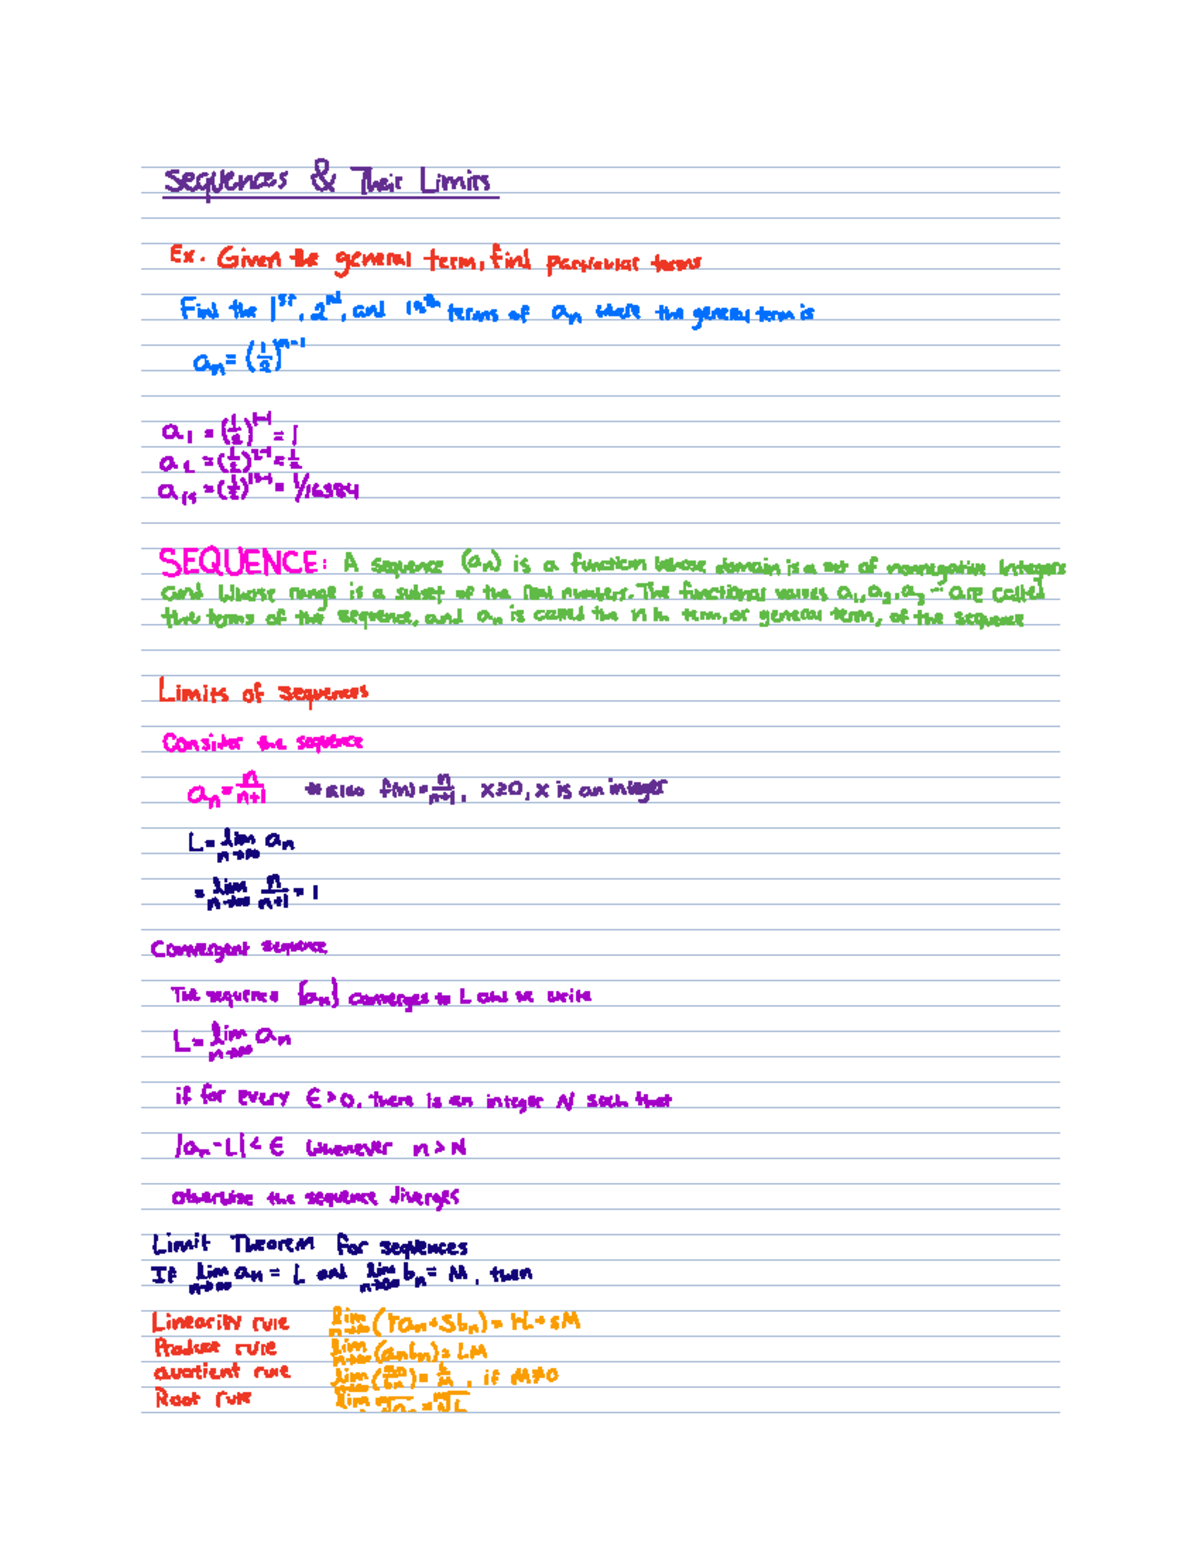 Sequences & Their Limits
Ex. Given the general term, find particular terms
Find the 1st, 2nd, and 15th terms of an where the general term is
an = (1/2)^n-1
a1 = (1/2)^1-1 = 1
a2 = (1/2)^2-1 = 1/2
a15 = (1/2)^15-1 = 1/16384
SEQUENCE: A sequence (an) is a function whose domain is a set of nonnegative integers
and whose range is a subset of the real numbers. The functional values a1, a2, a3 ... are called
the terms of the sequence, and an is called the nth term, or general term, of the sequence
Limits of sequences
Consider the sequence
an = n/n+1 *also f(n) = n/n+1, x≥0, x is an integer
L = lim n→∞ an
= lim n→∞ n/n+1 = 1
Convergent sequence
The sequence {an} converges to L and we write
L = lim n→∞ an
if for every ε > 0, there is an integer N such that
|an - L| < ε whenever n > N
otherwise the sequence diverges
Limit Theorem for sequences
If lim n→∞ an = L and lim n→∞ bn = M, then
Linearity rule lim n→∞ (ran + sbn) = rL + sM
Product rule lim n→∞ (anbn) = LM
Quotient rule lim n→∞ (an/bn) = L/M, if M≠0
Root rule lim m√an = m√L